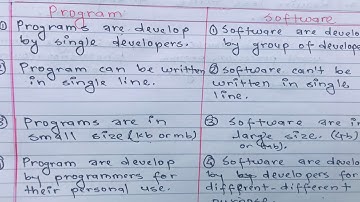 Program
① Programs are develop
by single developers.
Program can be written
in single line.
Programs are in
small size (kb or mb)
Program are develop
by programmers for
their personal use.
Software
① Software are develo
by group of develope
② Software can't be
written in single
line.
③ Software are in
large size. (
or
④ Software are develop
by developers for
different-different